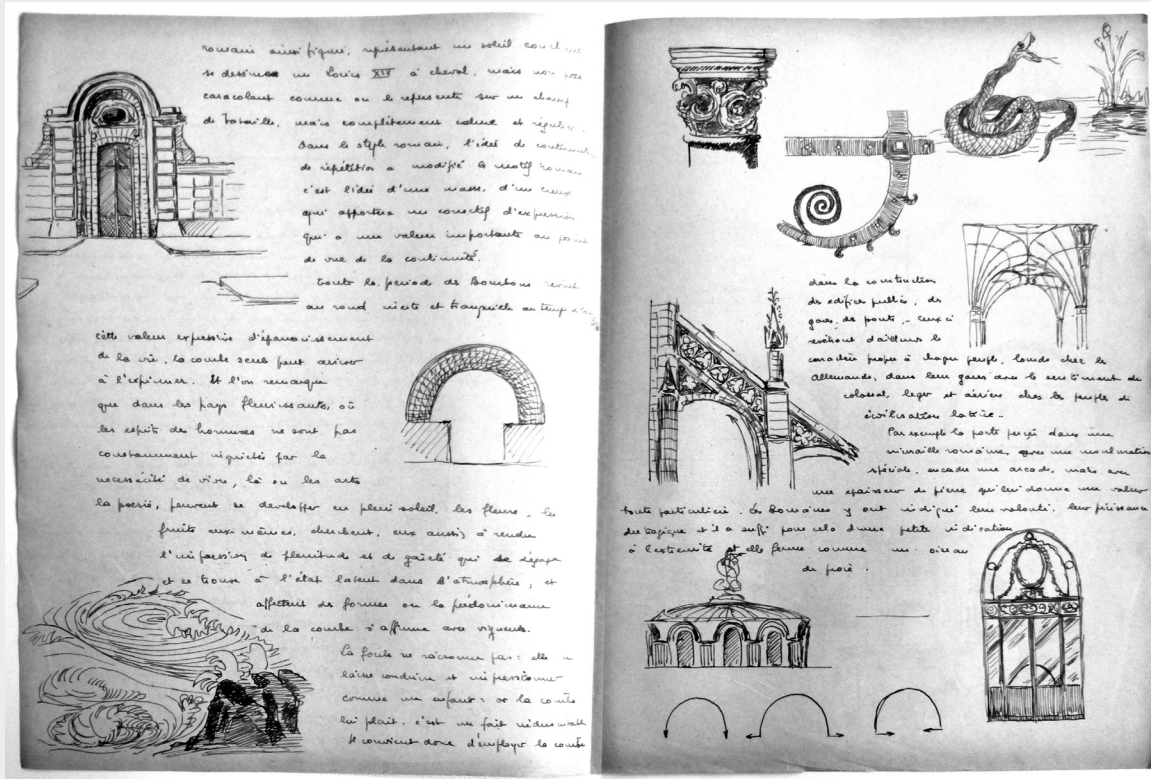 romain ainsi figuré, représentant un soleil couchant
se dessinera un Louis XIV à cheval, mais non pas
caracolant comme on le représente sur un champ
de bataille, mais complètement calme et régulier.
Dans le style roman, l'idée de continuité,
de répétition a modifié le motif romain
c'est l'idée d'une masse, d'un creux
qui apportera un correctif d'expression
qui a une valeur importante au point
de vue de la continuité.
Toute la période des Bourbons revient
au rond
cette valeur expressive d'épanouissement
de la vie, la courbe seule peut arriver
à l'exprimer. Et l'on remarque
que dans les pays fleurissants, où
les esprits des hommes ne sont pas
constamment inquiétés par la
nécessité de vivre, là où les arts
la poésie, peuvent se développer en plein soleil, les fleurs, les
fruits eux-mêmes, cherchent, eux aussi, à rendre
l'impression de plénitude et de gaieté qui se dégage
et se trouve à l'état latent dans l'atmosphère, et
affectent des formes où la prédominance
de la courbe s'affirme avec vigueur.
La foule ne raisonne pas : elle se
laisse conduire et impressionner
comme un enfant : or la courbe
lui plaît. c'est un fait
Il convient donc d'employer la courbe
dans la construction
des édifices publics, des
gares, de ponts,.. Ceux ci
revêtent d'ailleurs le
caractère propre à chaque peuple, lourds chez les
Allemands, dans leurs gares avec le sentiment de
colossal, léger et aérien chez les peuples de
civilisation latine..
Par exemple la porte percée dans une
muraille romaine, avec une
spéciale, encadre une arcade, mais avec
une épaisseur de pierre qui lui donne une valeur
toute particulière. Les Romains y ont indiqué leur volonté, leur puissance
et il a suffi pour cela d'une petite indication
à l'extrémité et elle ferme comme un oiseau
de proie.